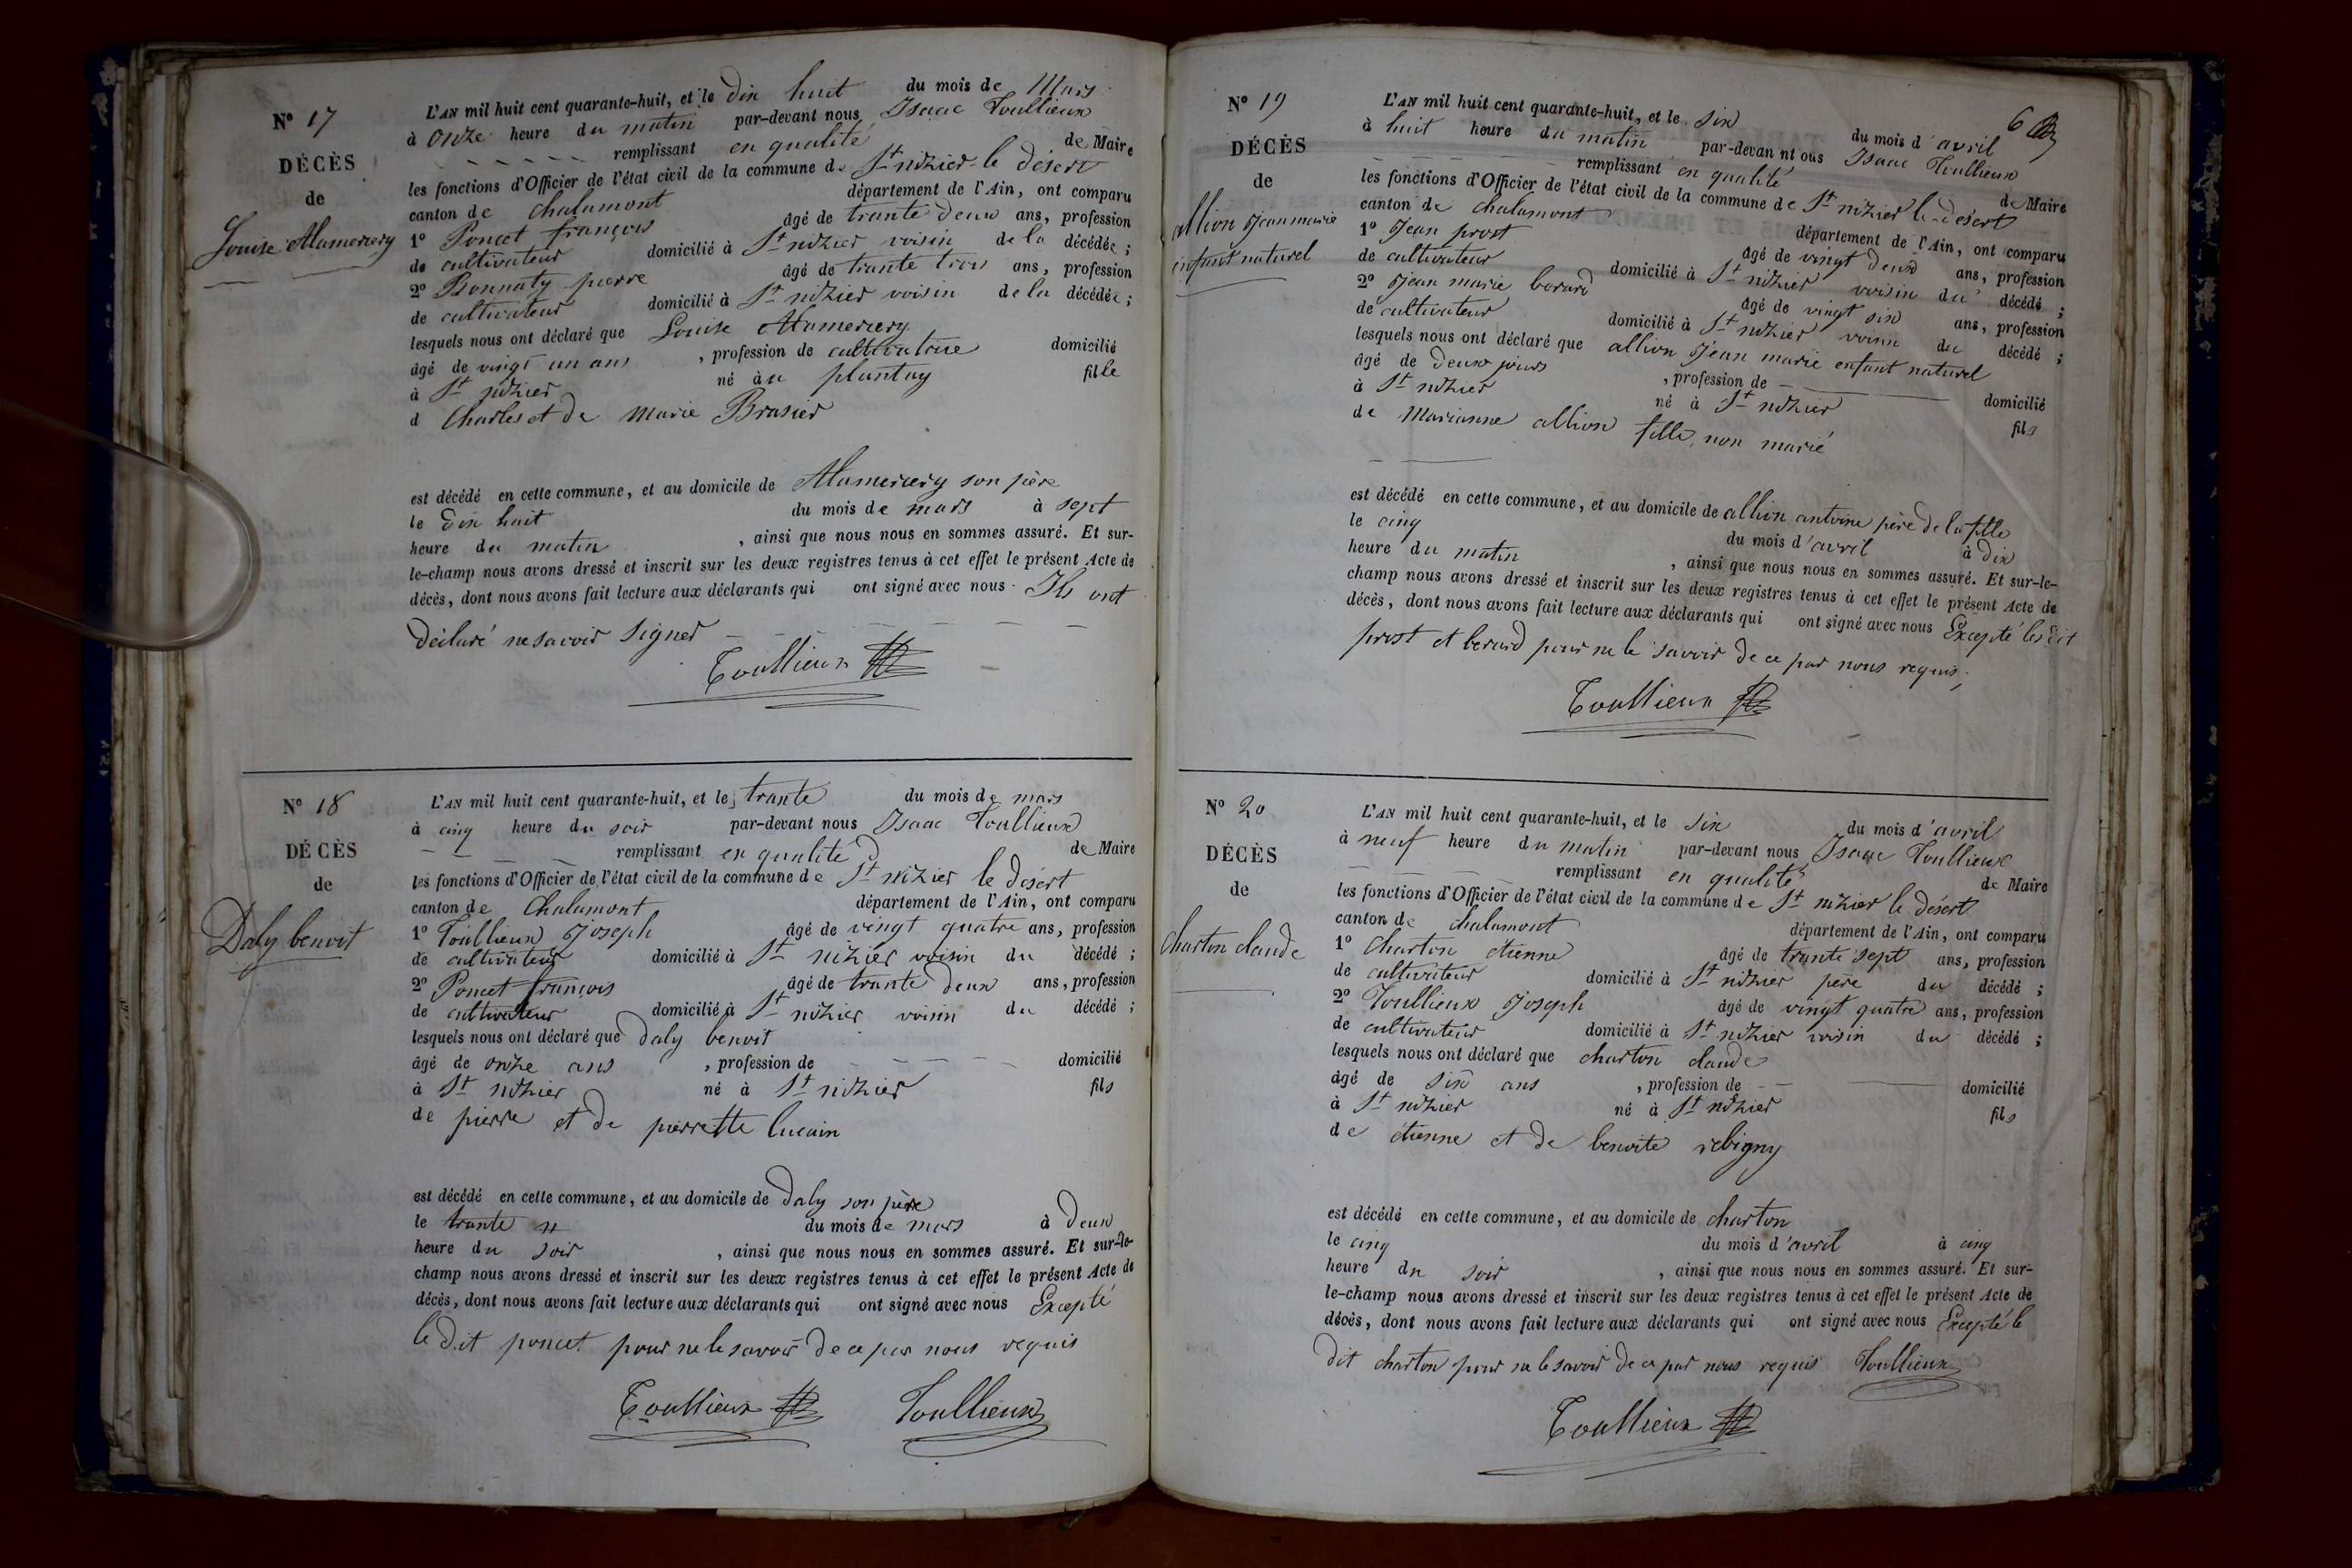 N° 17
DÉCÈS
de
Louise Alamercery
L'AN mil huit cent quarante-huit, et le dix huit du mois de Mars
à onze heure du matin par-devant nous Isaac Toullieux
remplissant en qualité de Maire
les fonctions d'Officier de l'état civil de la commune de St nizier le désert
canton de chalamont département de l'Ain, ont comparu
1° Poncet françois âgé de trante deux ans, profession
de cultivateur domicilié à St nizier voisin de la décédée ;
2° Bonnaty pierre âgé de trante trois ans, profession
de cultivateur domicilié à St nizier voisin de la décédée ;
lesquels nous ont déclaré que Louise Alamercery
âgé de vingt un ans , profession de cultivatrice domicilié
à St nizier né àu plantay fille
d Charles et de Marie Brasier
est décédé en cette commune, et au domicile de Alamercery son père
le dix huit du mois de mars à sept
heure du matin , ainsi que nous nous en sommes assuré. Et sur-
le-champ nous avons dressé et inscrit sur les deux registres tenus à cet effet le présent Acte de
décès, dont nous avons fait lecture aux déclarants qui ont signé avec nous Ils ont
déclaré ne savoir signer
Toullieux
N° 18
DÉCÈS
de
Daly benoit
L'AN mil huit cent quarante-huit, et le trante du mois de mars
à cinq heure du soir par-devant nous Isaac Toullieux
remplissant en qualité de Maire
les fonctions d'Officier de l'état civil de la commune de St nizier le désert
canton de Chalamont département de l'Ain, ont comparu
1° Toullieux Joseph âgé de vingt quatre ans, profession
de cultivateur domicilié à St nizier voisin du décédé ;
2° Poncet françois âgé de trante deux ans, profession
de cultivateur domicilié à St nizier voisin du décédé ;
lesquels nous ont déclaré que Daly benoit
âgé de onze ans , profession de domicilié
à St nizier né à St nizier fils
de pierre et de pierrette lucain
est décédé en cette commune, et au domicile de Daly son père
le trante du mois de mars à deux
heure du soir , ainsi que nous nous en sommes assuré. Et sur-le-
champ nous avons dressé et inscrit sur les deux registres tenus à cet effet le présent Acte de
décès, dont nous avons fait lecture aux déclarants qui ont signé avec nous Excepté
le dit poncet pour ne le savoir de ce par nous requis
Toullieux Toullieux
6
N° 19
DÉCÈS
de
allion Jean marie
enfant naturel
L'AN mil huit cent quarante-huit, et le six du mois d'avril
à huit heure du matin par-devan nt ous Isaac Toullieux
remplissant en qualité de Maire
les fonctions d'Officier de l'état civil de la commune de St nizier le désert
canton de chalamont département de l'Ain, ont comparu
1° Jean prost âgé de vingt deux ans, profession
de cultivateur domicilié à St nizier voisin du décédé ;
2° Jean marie berard âgé de vingt six ans, profession
de cultivateur domicilié à St nizier voisin du décédé ;
lesquels nous ont déclaré que allion Jean marie enfant naturel
âgé de deux jours , profession de domicilié
à St nizier né à St nizier fils
de Marianne allion fille non marié
est décédé en cette commune, et au domicile de allion antoine père de la fille
le cinq du mois d'avril à dix
heure du matin , ainsi que nous nous en sommes assuré. Et sur-le-
champ nous avons dressé et inscrit sur les deux registres tenus à cet effet le présent Acte de
décès, dont nous avons fait lecture aux déclarants qui ont signé avec nous Excepté les dit
prost et berard pour ne le savoir de ce par nous requis
Toullieux
N° 20
DÉCÈS
de
charton claude
L'AN mil huit cent quarante-huit, et le six du mois d'avril
à neuf heure du matin par-devant nous Isaac Toullieux
remplissant en qualité de Maire
les fonctions d'Officier de l'état civil de la commune de St nizier le désert
canton de chalamont département de l'Ain, ont comparu
1° charton etienne âgé de trante sept ans, profession
de cultivateur domicilié à St nizier père du décédé ;
2° Toullieux Joseph âgé de vingt quatre ans, profession
de cultivateur domicilié à St nizier voisin du décédé ;
lesquels nous ont déclaré que charton claude
âgé de six ans , profession de domicilié
à St nizier né à St nizier fils
de etienne et de benoite rebigny
est décédé en cette commune, et au domicile de charton
le cinq du mois d'avril à cinq
heure du soir , ainsi que nous nous en sommes assuré. Et sur-
le-champ nous avons dressé et inscrit sur les deux registres tenus à cet effet le présent Acte de
décès, dont nous avons fait lecture aux déclarants qui ont signé avec nous Excepté le
dit charton pour ne le savoir de ce par nous requis Toullieux
Toullieux